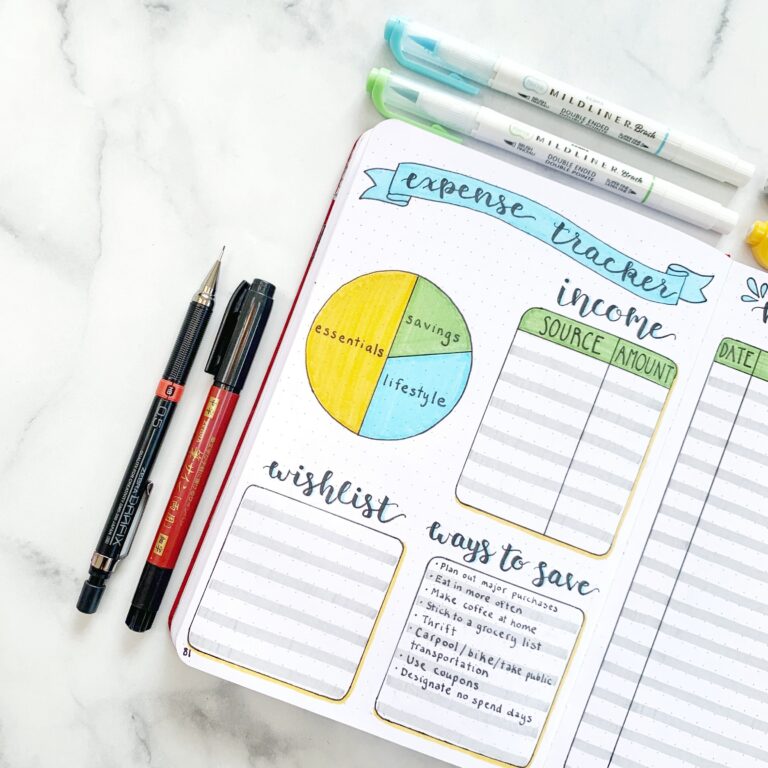 MILDLINER Brush
DOUBLE ENDED
MILDLINER Brush
DOUBLE ENDED
DOUBLE POINTE
expense tracker
income
SOURCE AMOUNT
DATE
essentials
savings
lifestyle
0.5
wishlist
ways to save
• Plan out major purchases
• Eat in more often
• Make coffee at home
• Stick to a grocery list
• Thrift
• Carpool/bike/take public
transportation
• Use coupons
• Designate no spend days
81